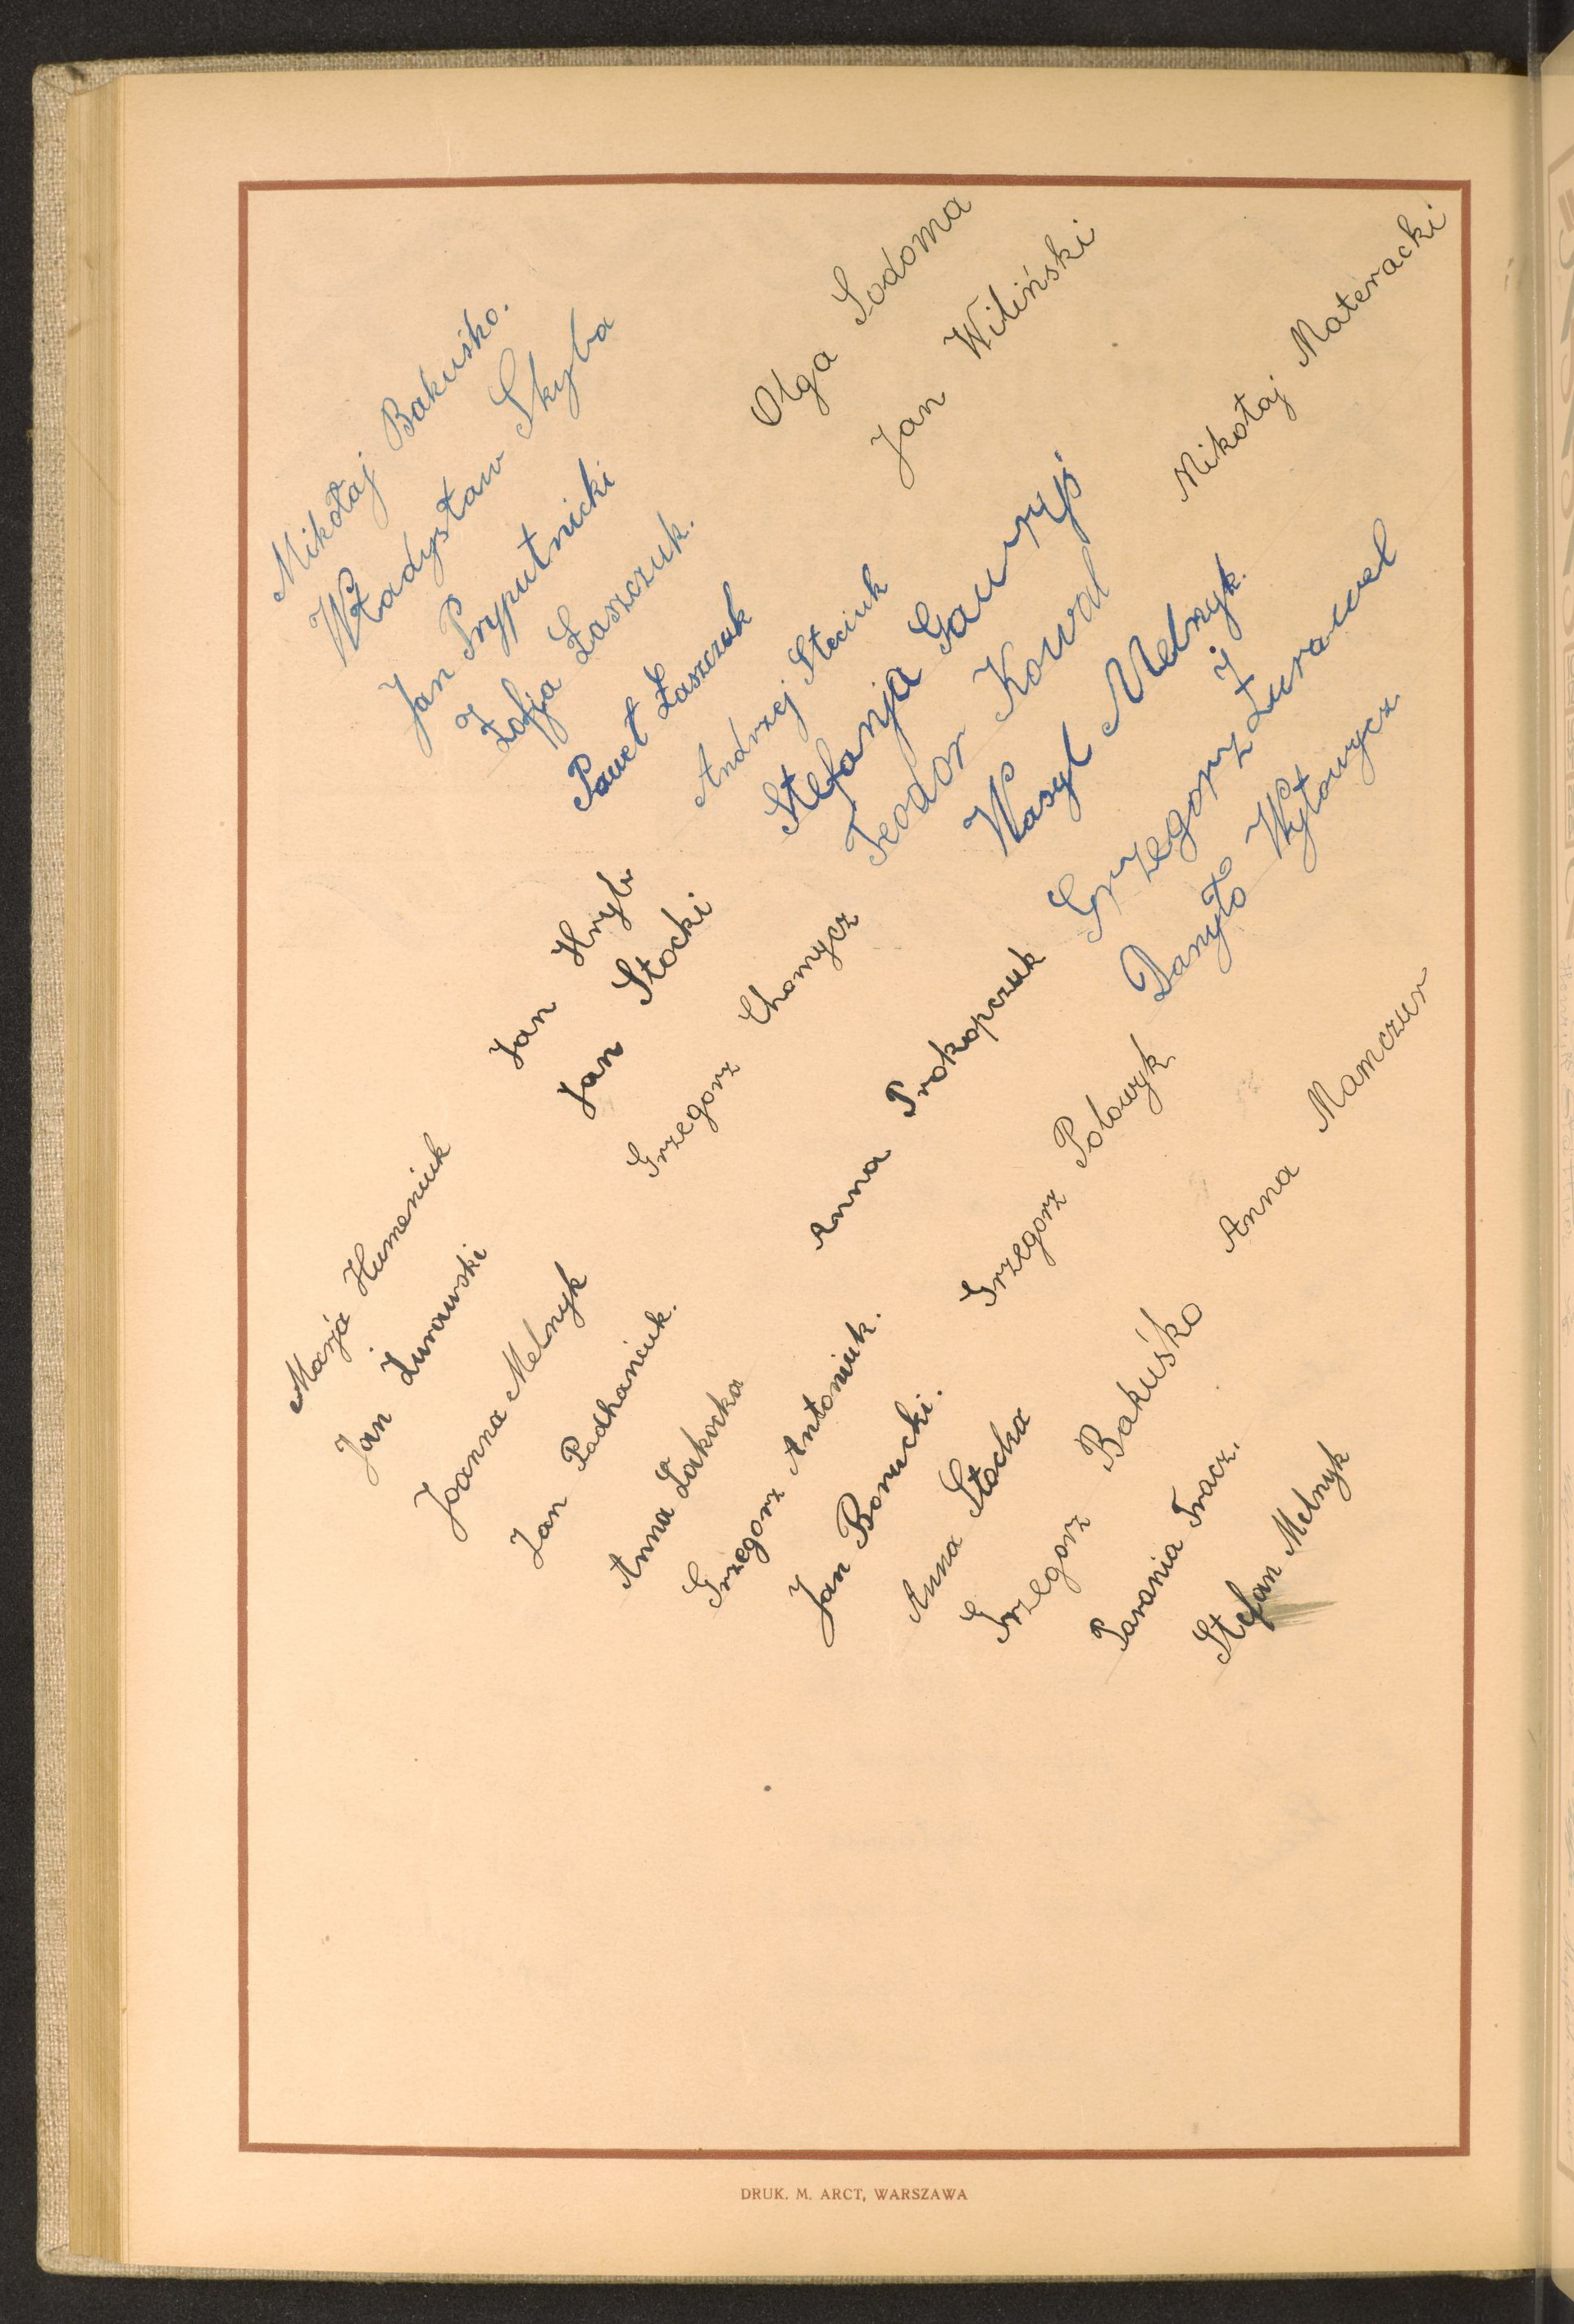 Mikołaj Bakuśko.
Władysław Skyba
Jan Pryputnicki
Zofja Łaszczuk.
Paweł Łaszczuk
Andrzej Steciuk
Stefanja Gawryś
Teodor Kowal
Wasyl Melnyk.
Grzegorz Żurawel
Danyło Wytowycz
Olga Sodoma
Jan Wiliński
Mikołaj Materacki
Jan Hryb
Jan Stocki
Grzegorz Chomycz
Anna Prokopczuk
Grzegorz Połowyk
Anna Mamczur
Marja Humeniuk
Jan Żurawski
Joanna Melnyk
Jan Podhaniuk.
Anna
Grzegorz Antoniuk.
Jan Borucki.
Anna Stocka
Grzegorz Bakuśko
Parania Tracz.
Stefan Melnyk
DRUK. M. ARCT, WARSZAWA